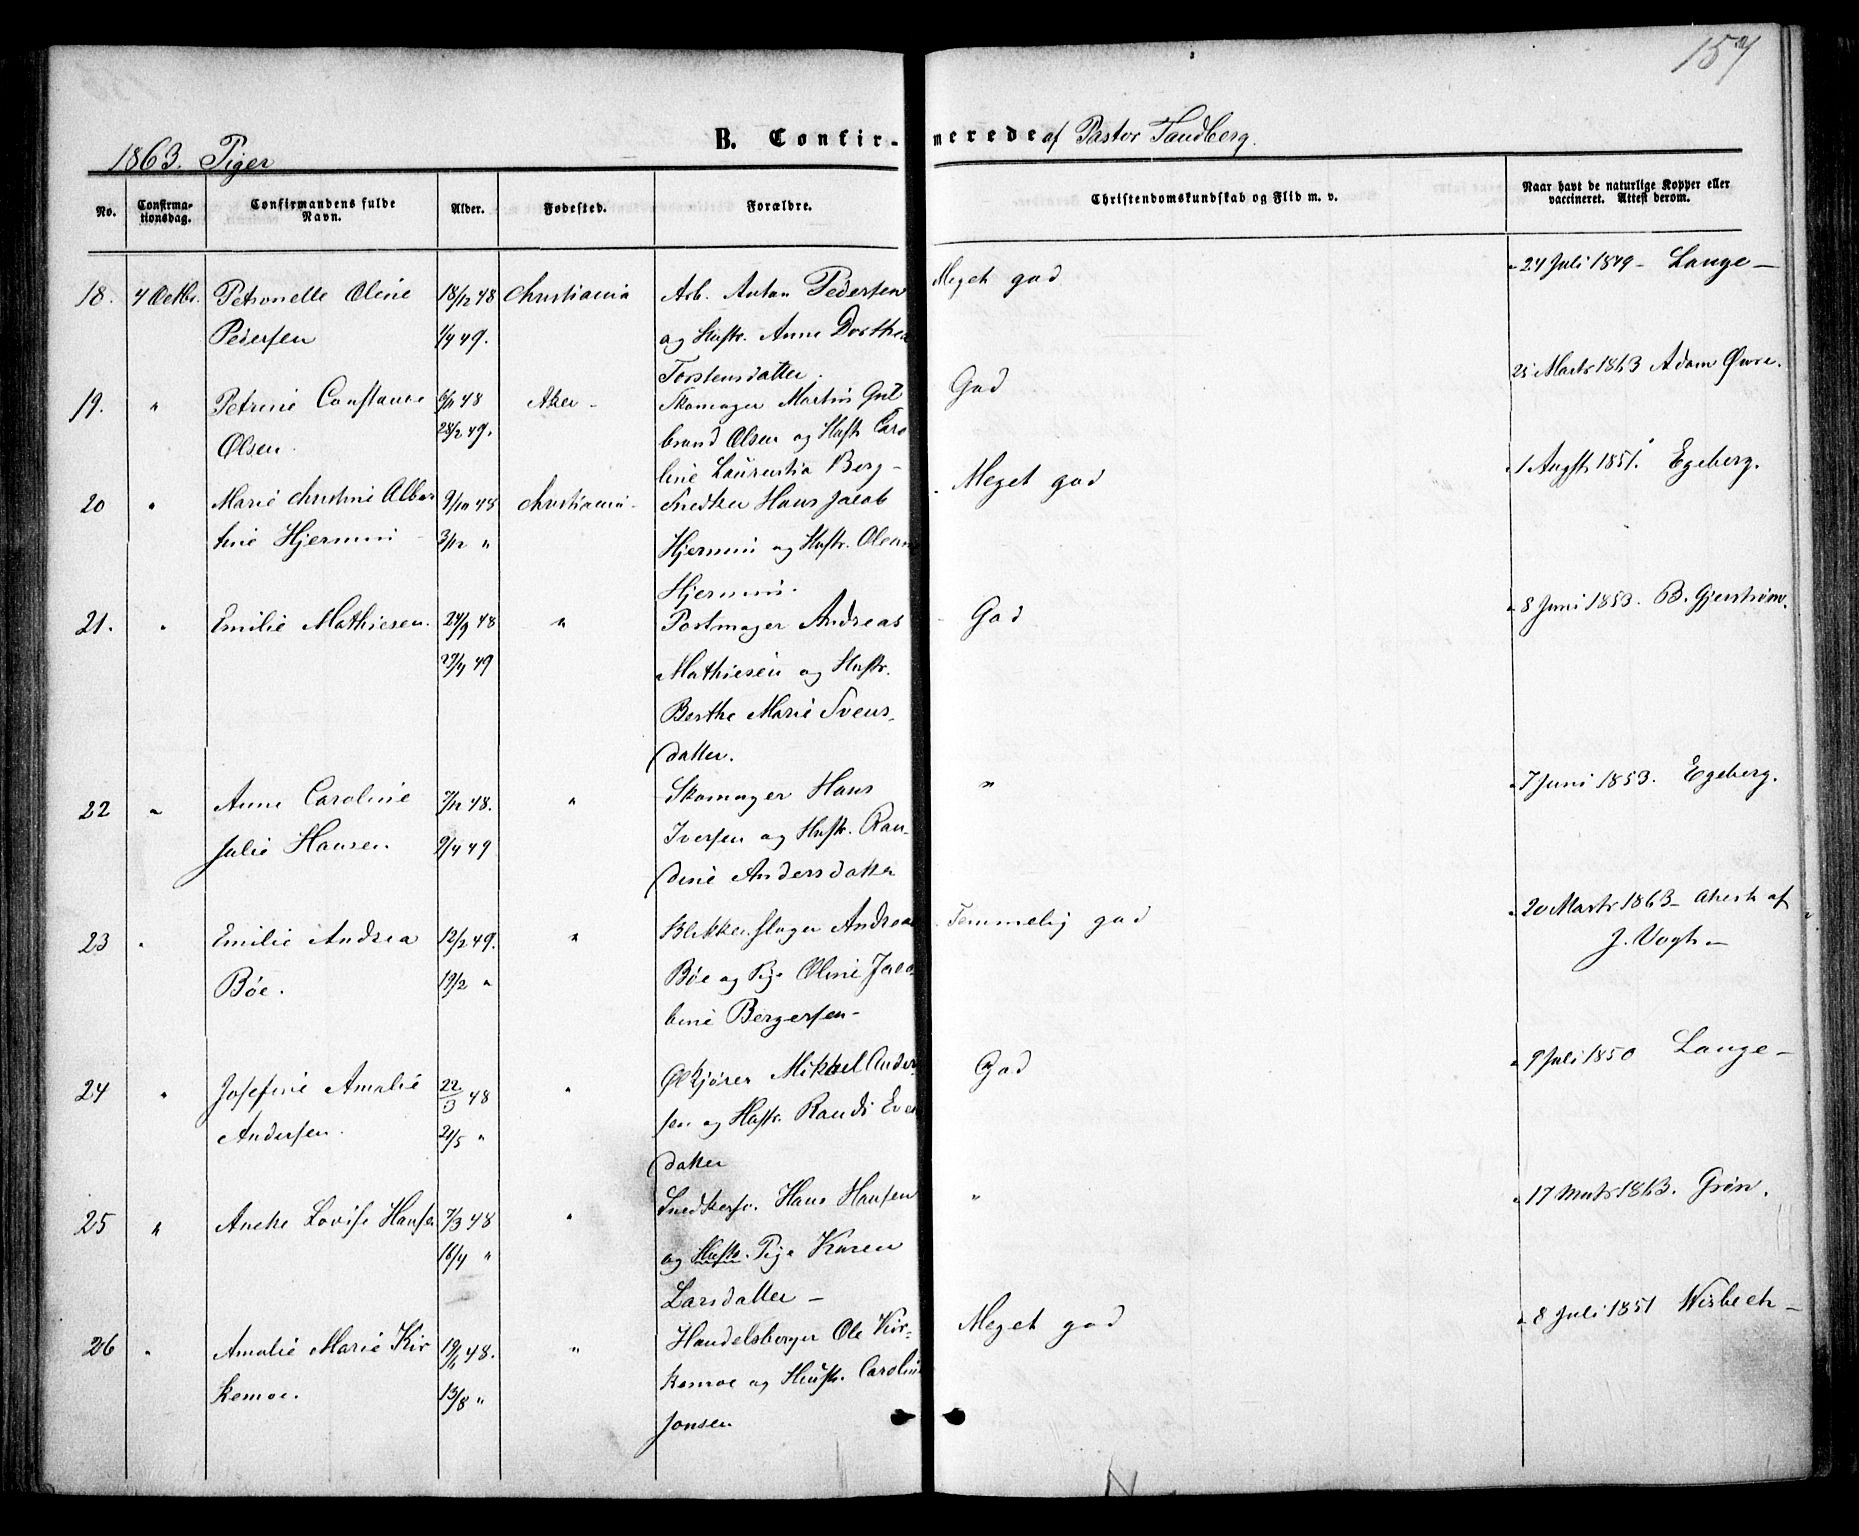 157
1863. Piger
B. Confir-merede af Pastor Tandberg.
No.
Confirma-
tionsdag.
Confirmandens fulde
Navn.
Alder.
Fødested.
Forældre.
Christendomskundskab og Flid m. v.
Naar havt de naturlige Kopper eller
vaccineret. Attest derom.
18. 4 Octbr. Petronelle Oline 18/12 48 Christiania Arb. Anton Pedersen Meget god 24 Juli 1849 - Lange -
Pedersen 1/4 49. og Hustr. Anne Dorthea
Torstensdatter.
19. " Petrine Constance 6/11 48 Aker - Skomager Martin Gul God 25 Marts 1863 Adam Øwre.
Olsen. 28/2 49. brand Olsen og Hustr Caro
line Laurentia Berg -
20 " Marie Christine Alber 9/10 48 Christiania - Snedker Hans Jacob Meget god 1 Augst 1851. Egeberg.
tine Hjermin 3/12 " Hjermin og Hustr. Oleana
Hjermin.
21. " Emilie Mathiesen. 24/9 48 " Portmager Andreas God 8 Juni 1853. B. Gjerstrøm.
29/4 49 Mathiesen og Hustr.
Berthe Marie Svens-
datter.
22 " Anne Caroline 7/12 48. " Skomager Hans " 7 Juni 1853. Egeberg.
Julie Hansen. 9/4 49 Iversen og Hustr. Ran-
dine Andersdatter
23 " Emilie Andrea 12/2 49. " Blikkenslager Andreas Temmelig god 20 Marts 1863 - Attest af
J. Vogt -
Bøe. 19/2 " Bøe og Pige Oline Jaco
bine Bergersen -
24 " Josefine Amalie 22/3 48 " Ølkjører Mikael Ander God 9 Juli 1850 Lange -
Andersen. 21/5 " sen og Hustr. Randi Even
datter
25 " Anette Lovise Hansen 7/3 48 " Snedkersv. Hans Hansen " 17 Marts 1863. Grøn.
16/4 " og Hustr. Pige Karen
Larsdatter -
26 " Amalie Marie Kir 19/6 48. " Handelsborger Ole Kir- Meget god 8 Juli 1851 Wisbech -
kemoe. 13/8 " kemoe og Hustr. Caroline
Jonsen